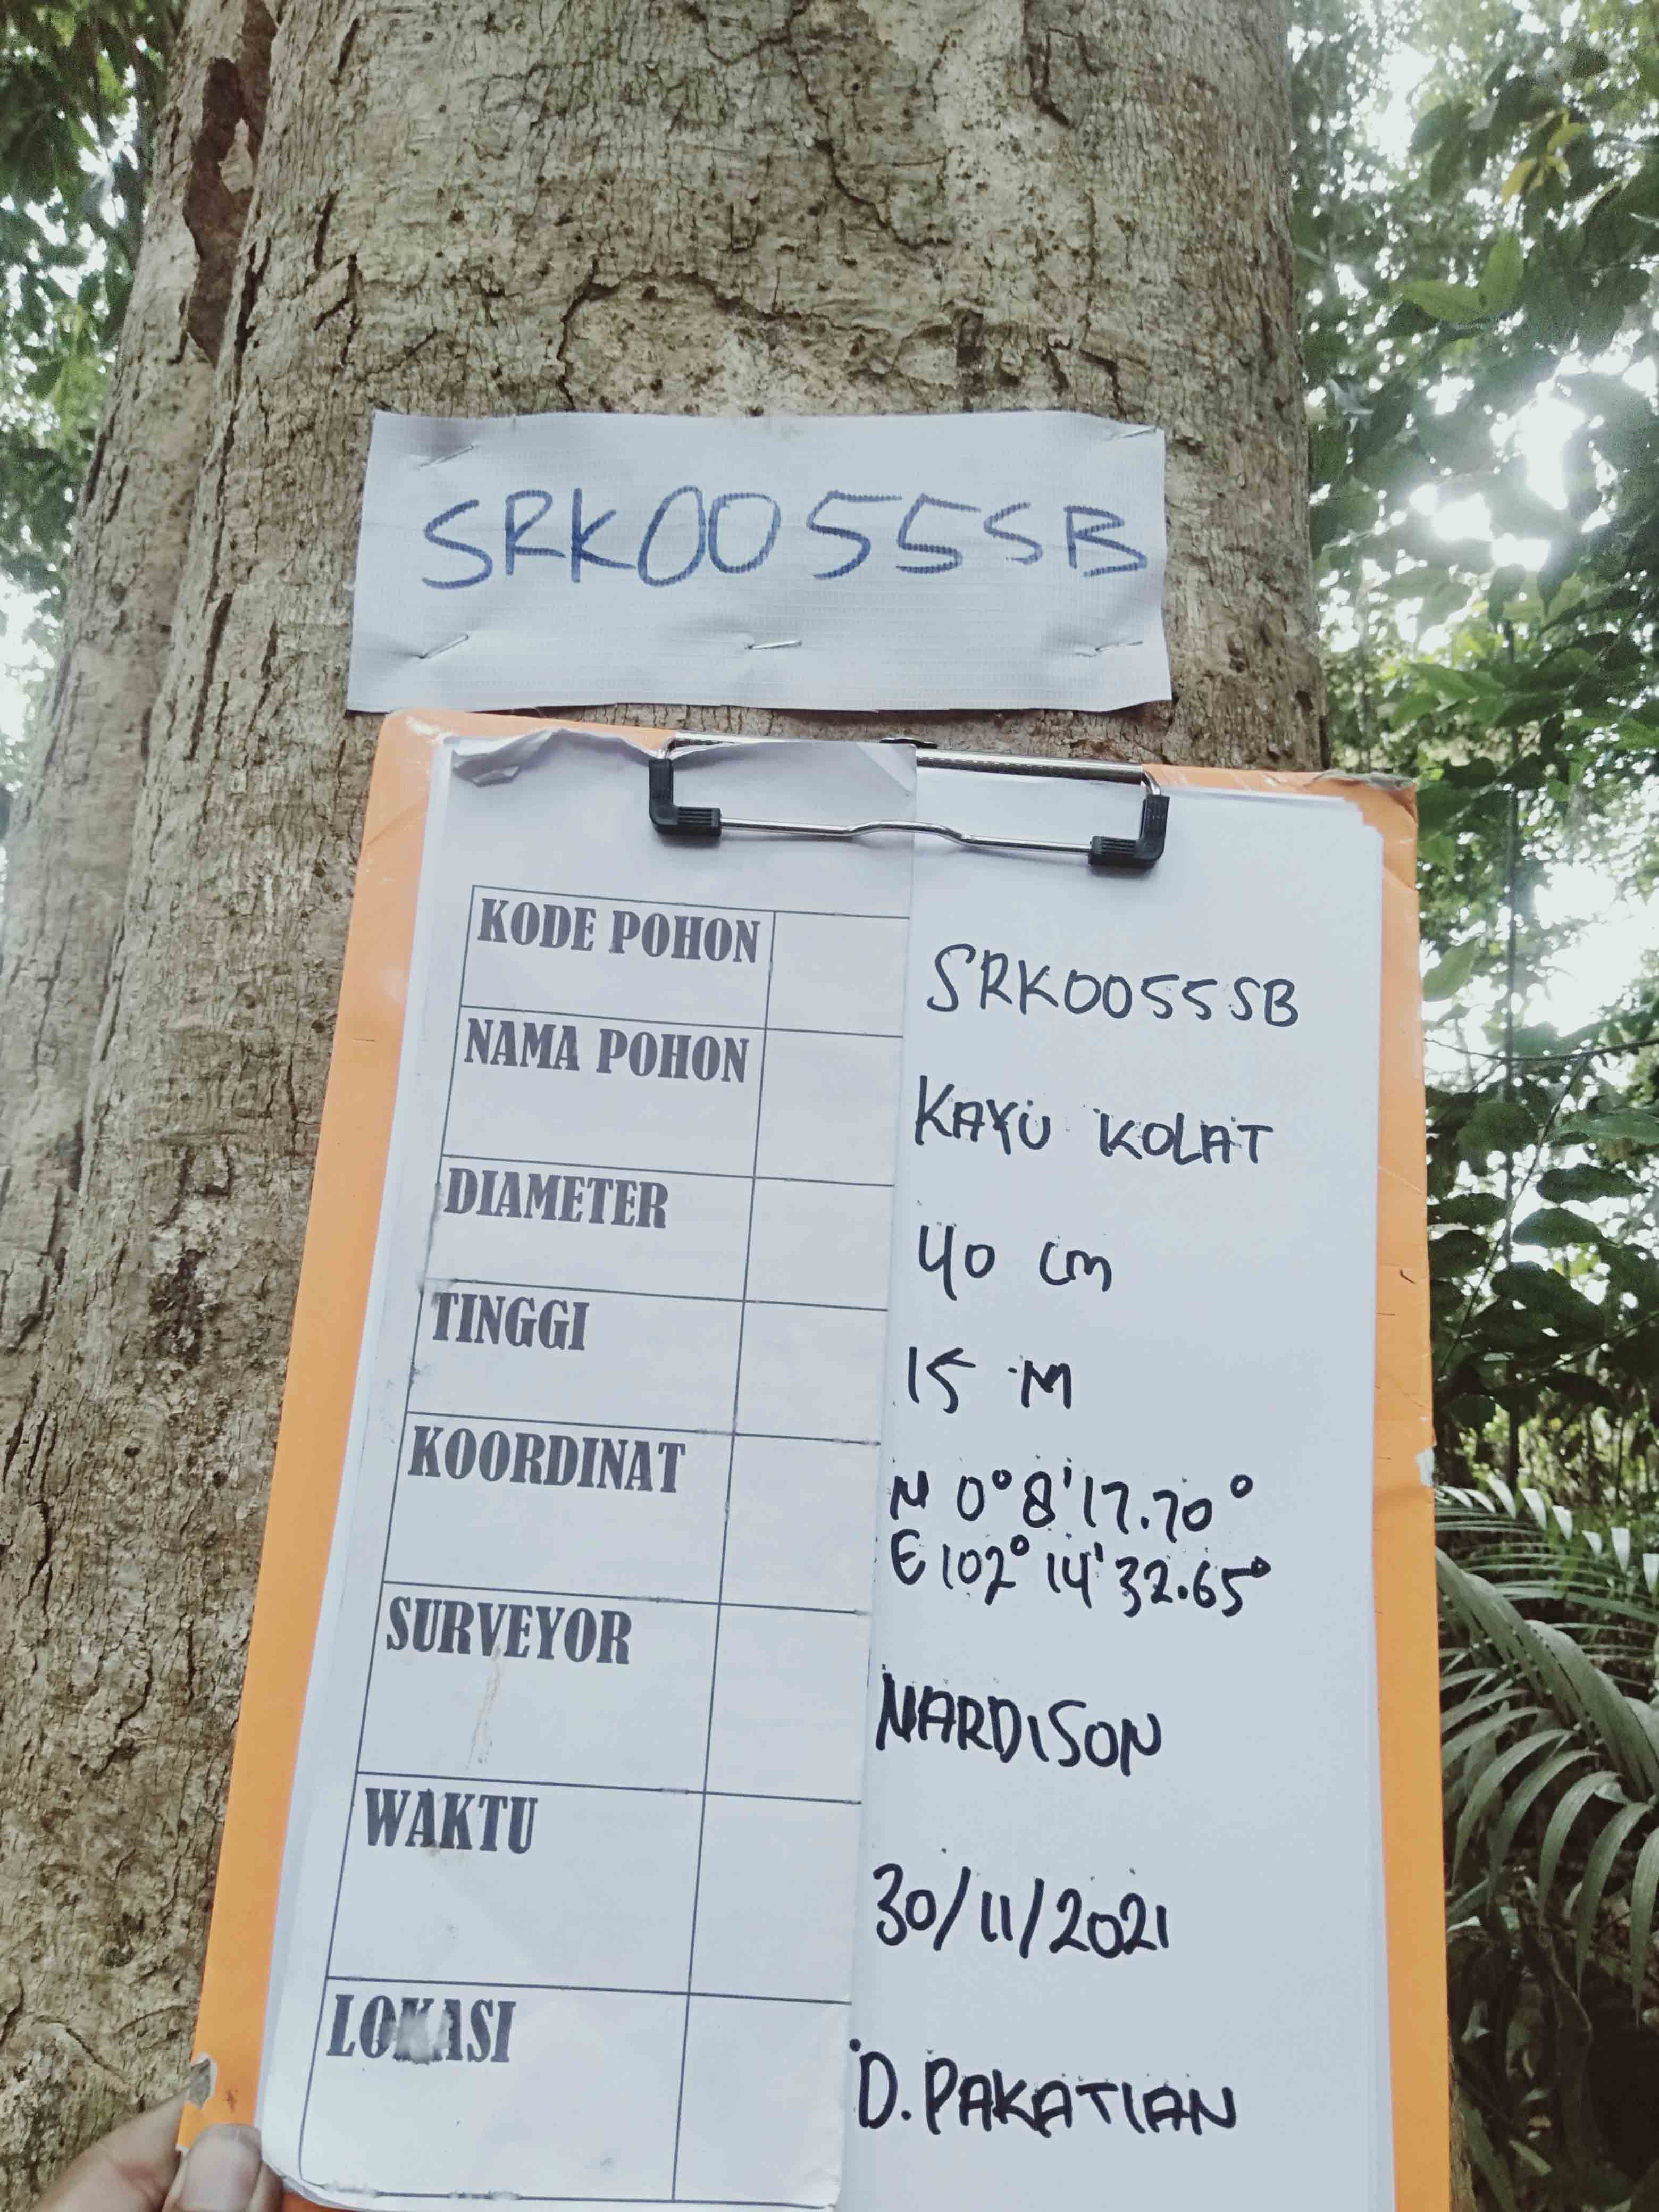 SRK0055SB
KODE POHON SRK0055SB
NAMA POHON KAYU KOLAT
DIAMETER 40 cm
TINGGI 15 M
KOORDINAT N 0°8'17.70°
E 102° 14' 32.65°
SURVEYOR NARDISON
WAKTU 30/11/2021
LOKASI D. PAKATIAN